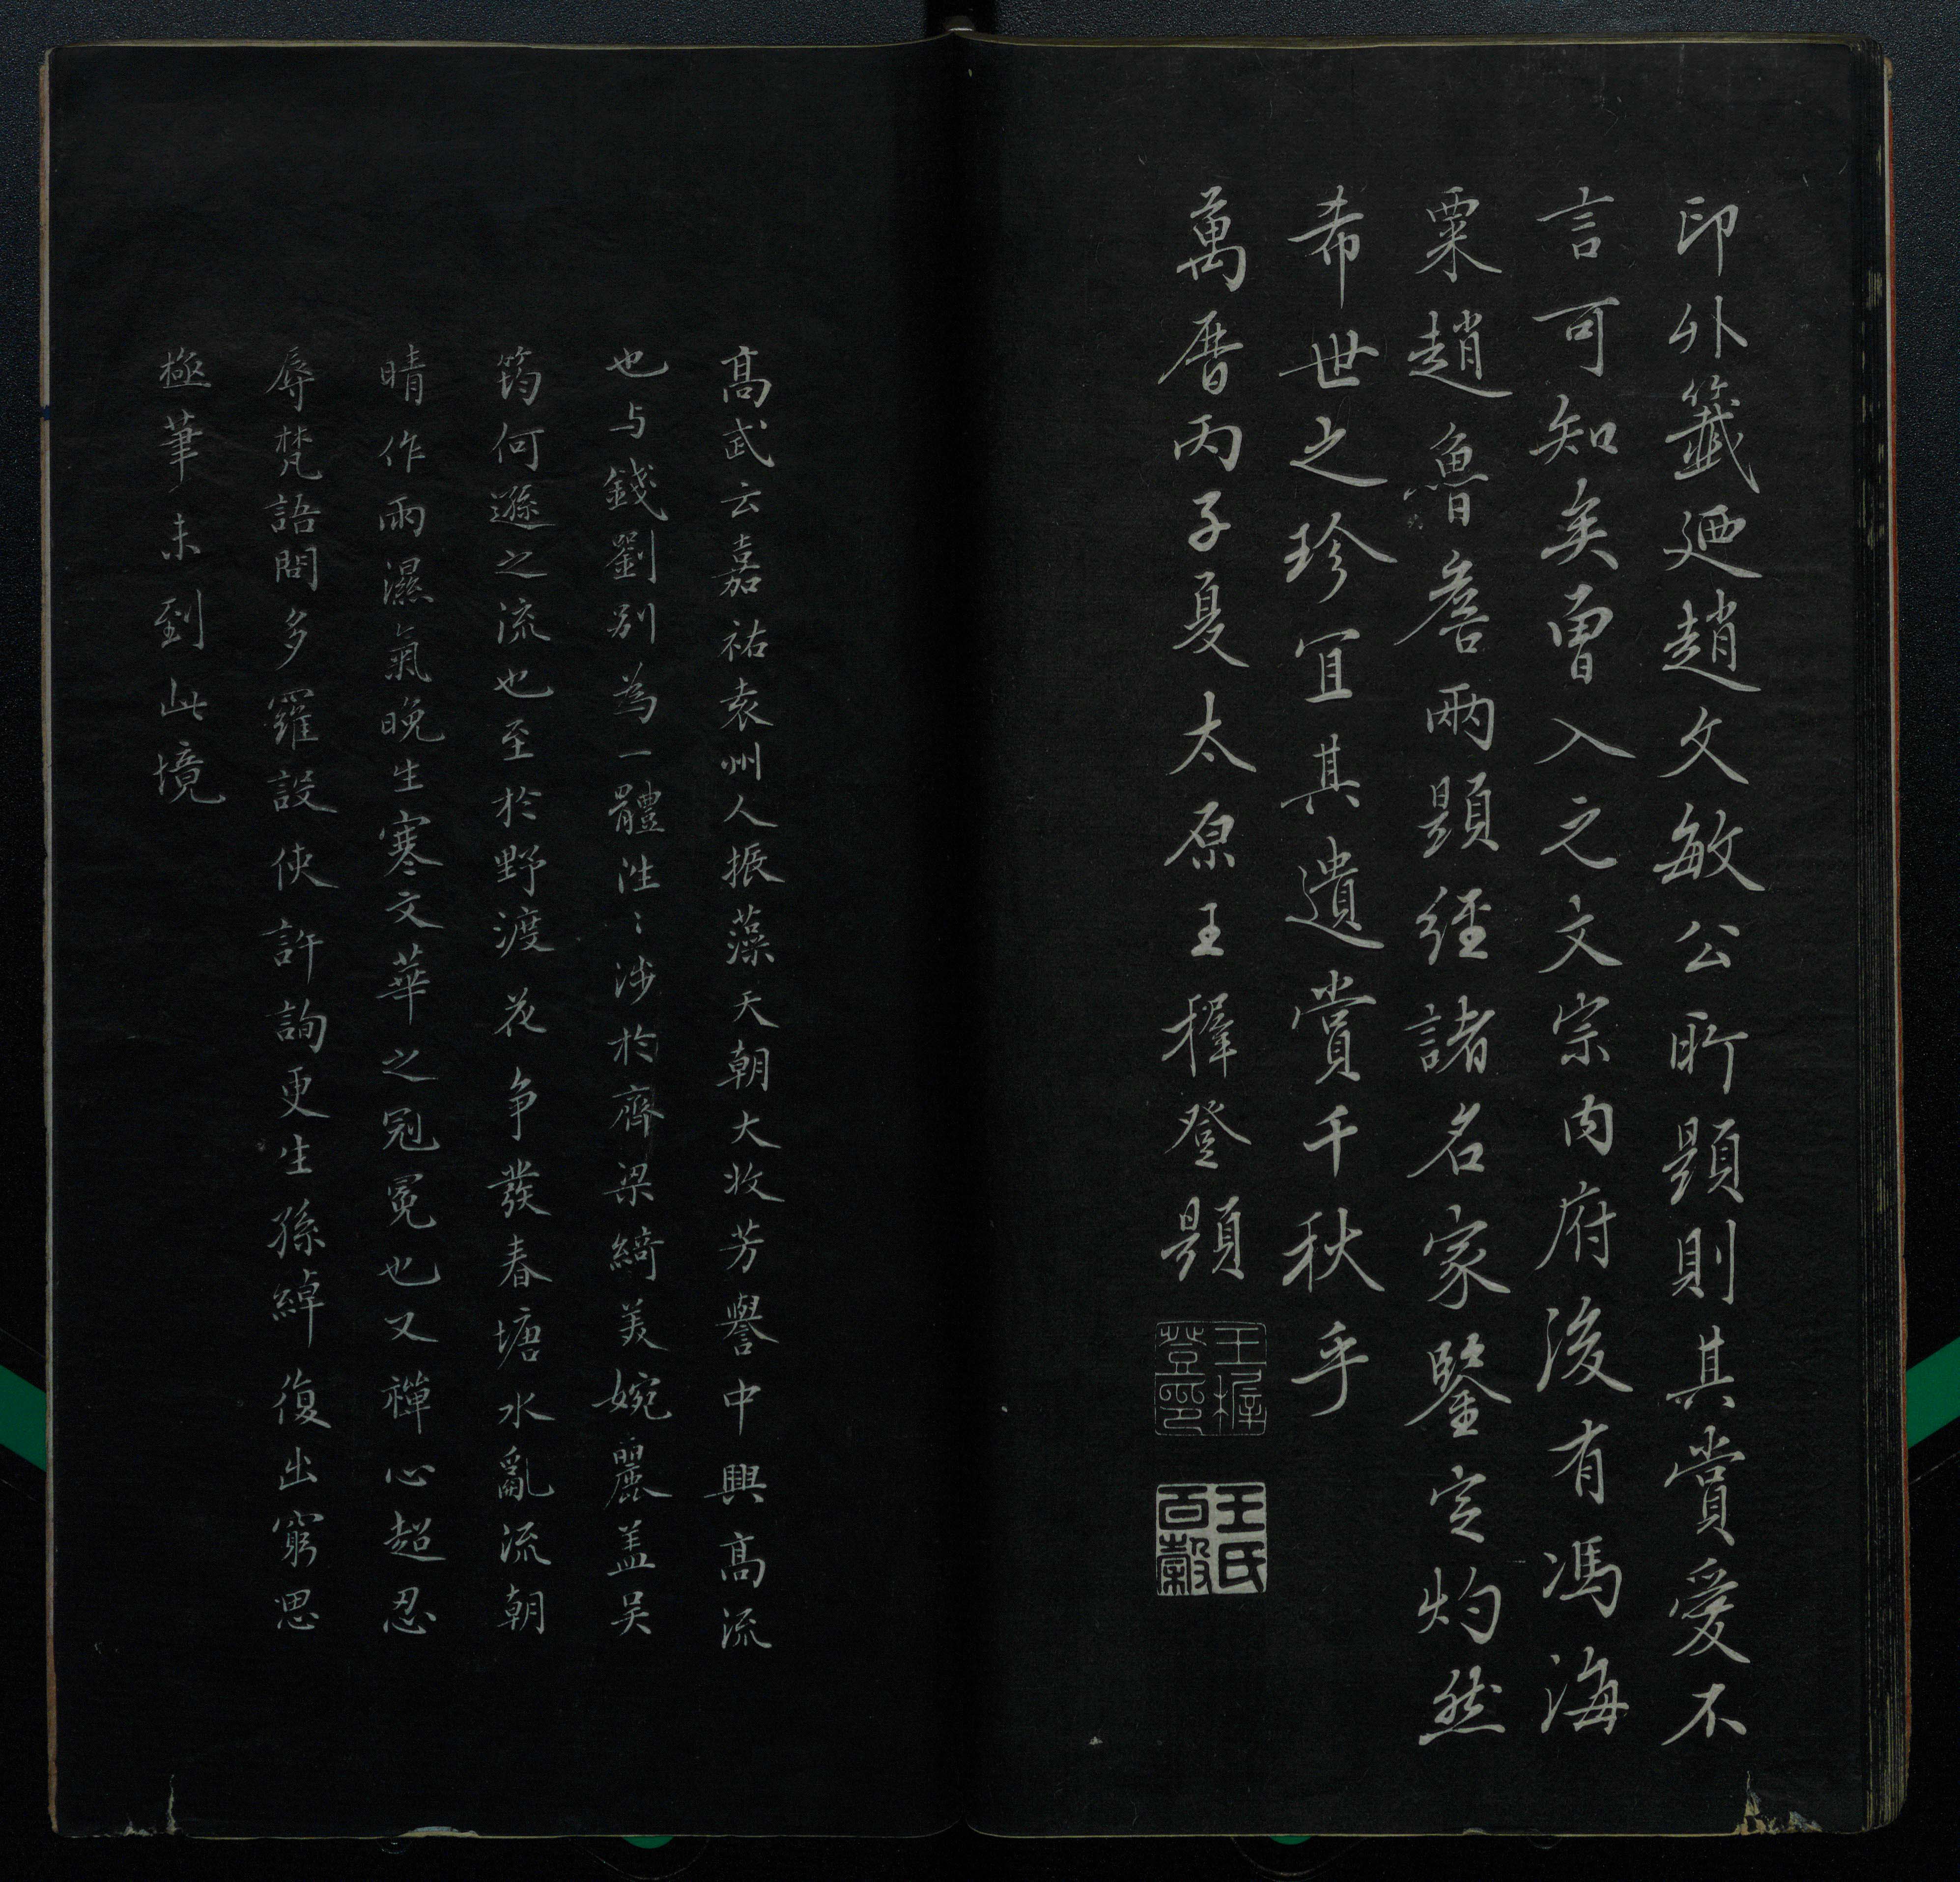 印外籤迺趙文敏公所題則其賞愛不
言可知矣曾入之文宗內府後有馮海
粟趙魯菴兩題經諸名家鑒定灼然
希世之珍宜其遺賞千秋乎
萬曆丙子夏太原王穉登題
王穉登印
王氏百穀
高武云嘉祐袁州人振藻天朝大收芳譽中興高流
也与錢劉別為一體往〻涉於齊梁綺美婉麗盖吴
筠何遜之流也至於野渡花争發春塘水亂流朝
晴作雨濕氣晚生寒文華之冠冕也又禪心超忍
辱梵語問多羅設使許詢更生孫綽復出窮思
極筆未到此境